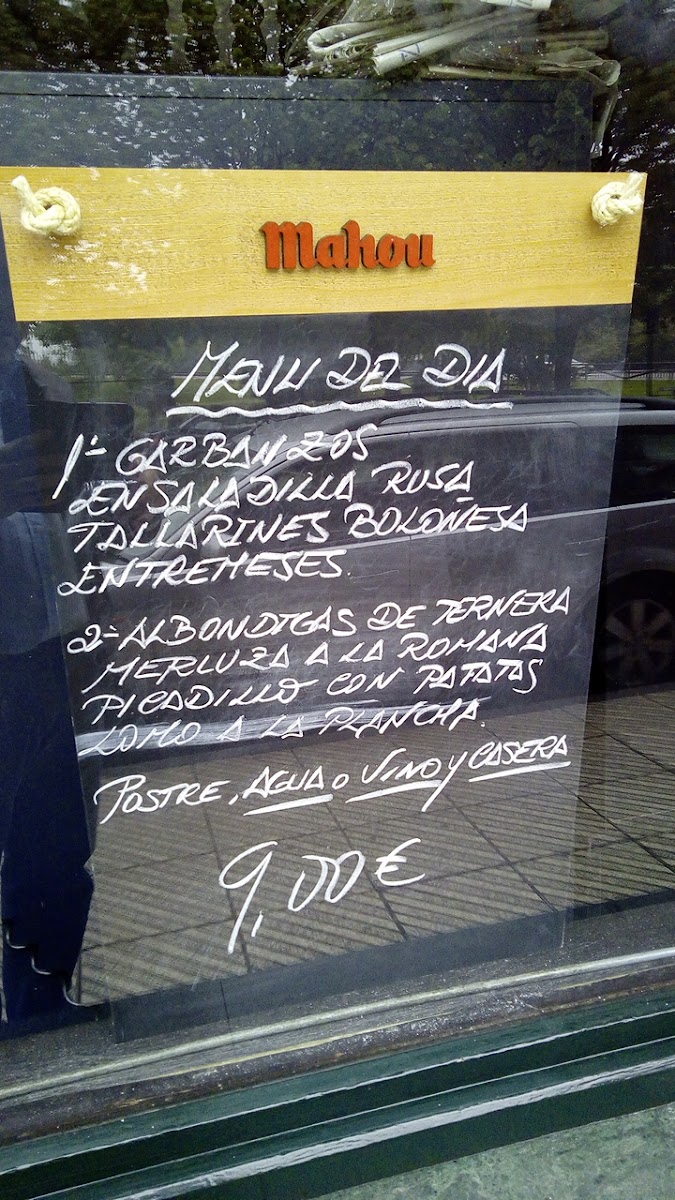 Mahou
MENU DEL DIA
1- GARBANZOS
ENSALADILLA RUSA
TALLARINES BOLOÑESA
ENTREMESES.
2- ALBONDIGAS DE TERNERA
MERLUZA A LA ROMANA
PICADILLO CON PATATAS
LOMO A LA PLANCHA.
POSTRE, AGUA O VINO Y CASERA
9,00€